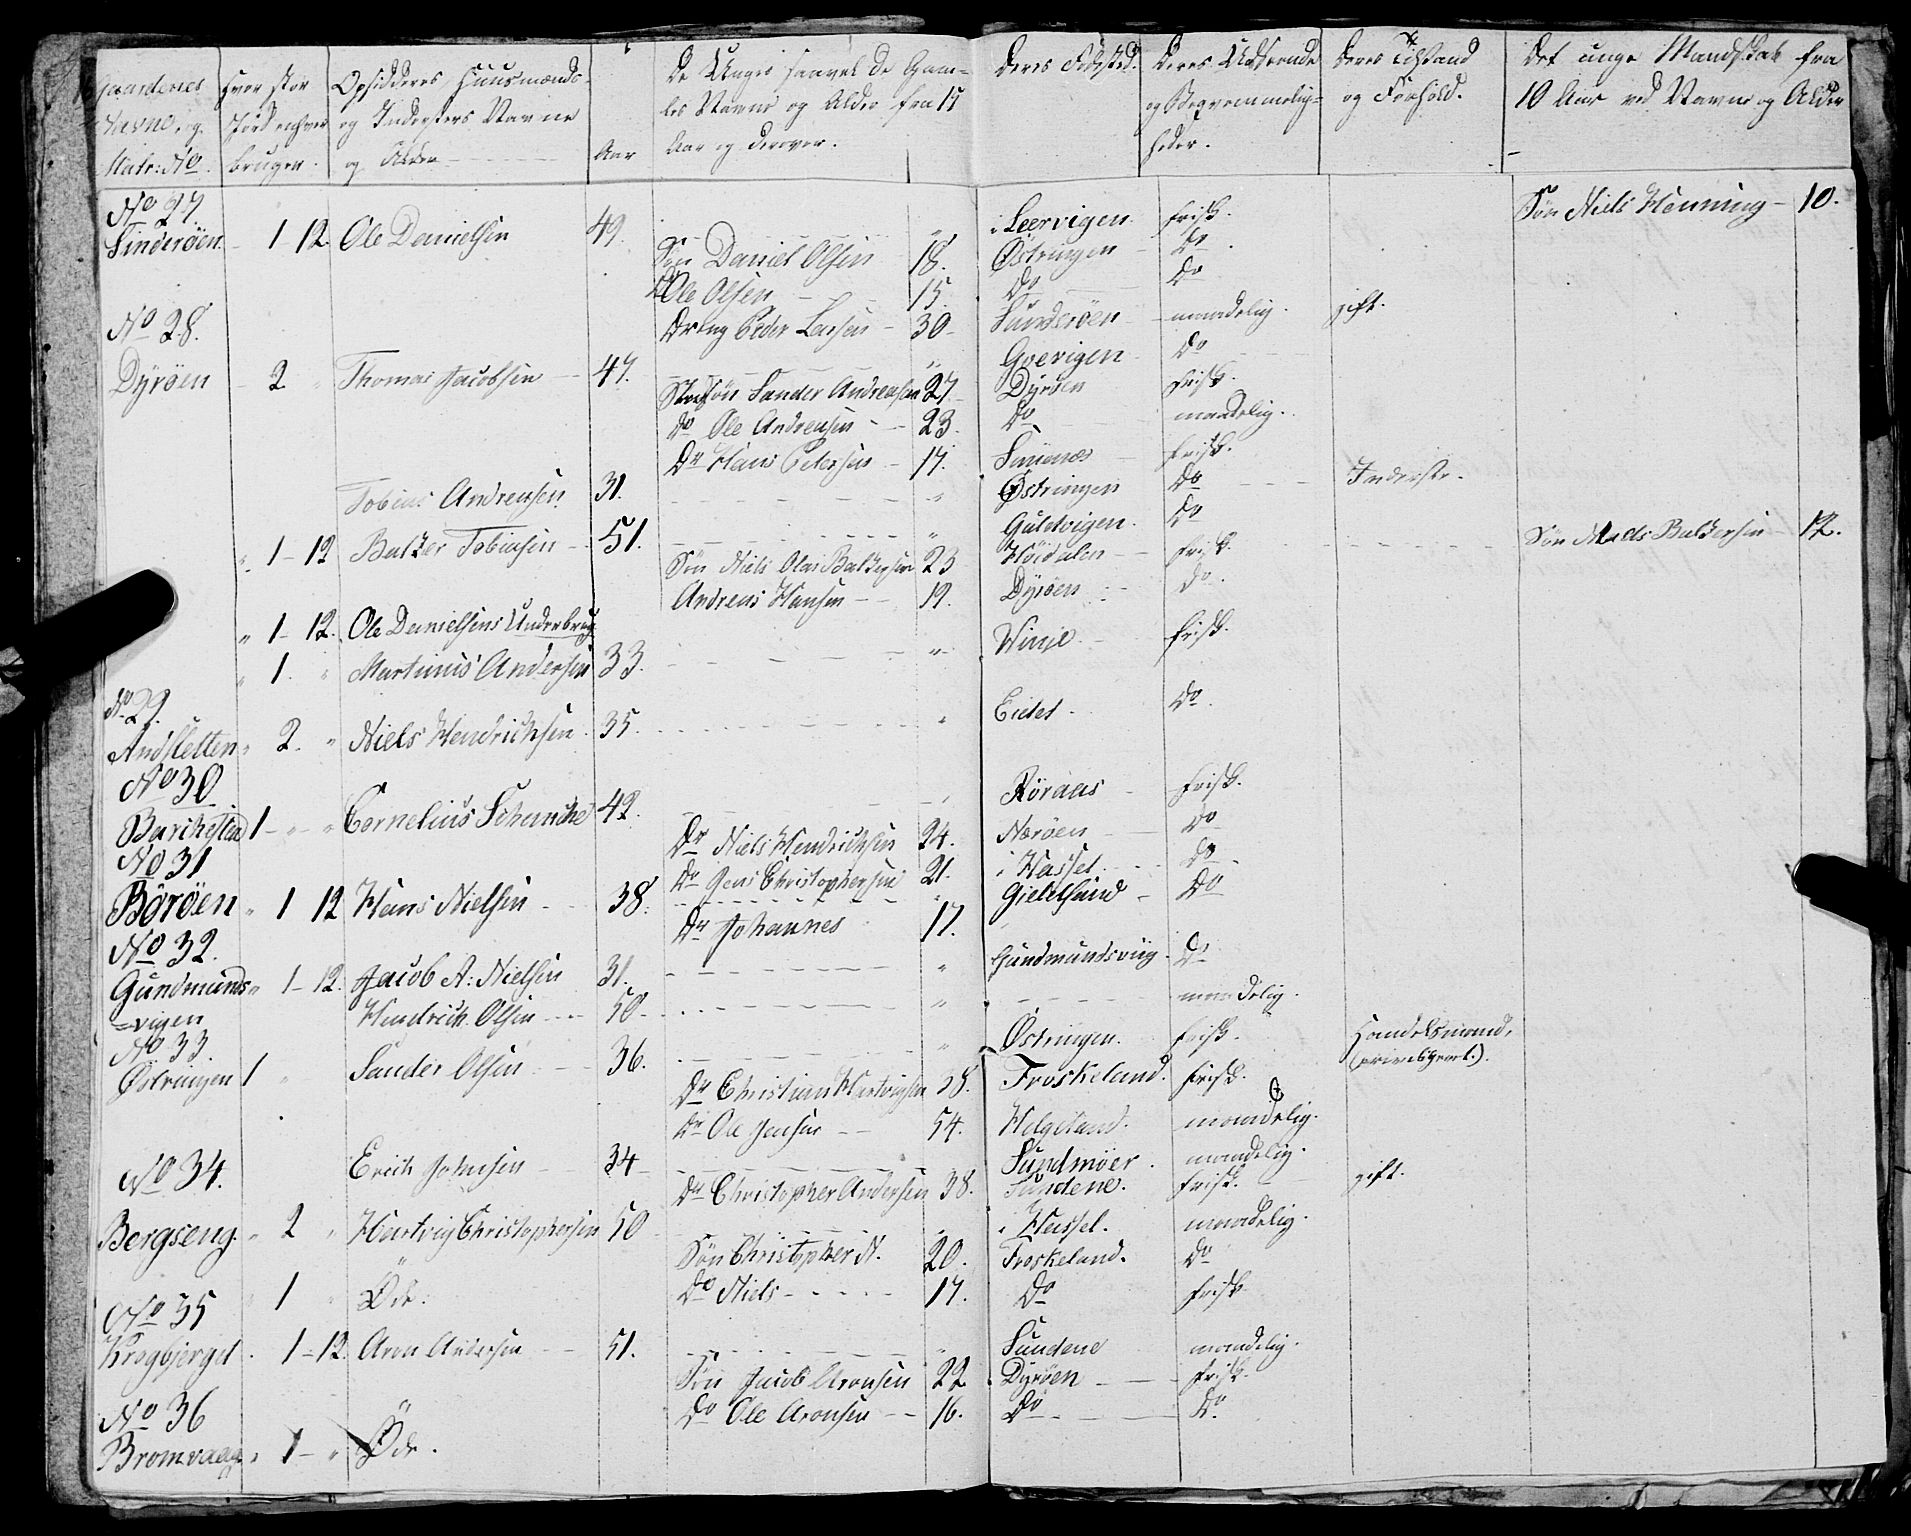 Gaardenes Navne, og Matr: No | Hvor stor Jord enhver bruger. | Opsidderes Huusmænds- og Indersters Navne og Alder | Aar | De Unges saavel de Gamles Navne og Alder fra 15 Aar og derover. | Deres Fødested. | Deres Udseende og Beqvemmeligheder. | Deres Tilstand og Forhold. | Det unge Mandskab fra 10 Aar ved Navne og Alder
No 27.
Sinderøen 1-12. Ole Danielsen 49. " i Leervigen frisk. Søn Niels Henning - 10.
Søn Daniel Olsen 18. Østringen Do.
Do Ole Olsen 15. Do Do
No 28. Dreng Peder Larsen - 30 - Sunderøen maadelig. gift.
Dyrøen - 2 " Thomas Jacobsen 47. " Do
Stedsøn Sander Andreasen 27 Dyrøen frisk.
Do Ole Andreasen - 23. Do maadelig.
Dr Hans Petersen - 17. frisk.
Tobias Andreasen 31. " Østringen Do Inderste.
" 1-12 Balzer Tobiasen 51. " Guldvigen. Do Søn Mads Baltzersen 12.
Søn Niels Olai Baltzersen 23 Høidalen frisk.
Andreas Hansen 19. Dyrøen Do.
" 1-12. Ole Danielsens Underbrug
" 1. " Martinus Andersen 33. " Winje frisk.
No 29.
Andsletten " 2. " Niels Hendrichsen 35. " Eidet. Do.
No 30
Burchestad 1 - " " Cornelius Schunche 42. Røraas frisk.
Dr Niels Hendrichsen 24. Nærøen Do
No 31 Do Jens Christophersen 21. i Hassel Do.
Børøen " 1 12 Hans Nielsen 38. Do
Dr Johannes 17.
No 32.
Gundmunds " 1-12. Jacob A: Nielsen 31. " Gundmundsviig. Do
=vigen Hendrich Olsen 50. " maadelig.
No 33.
Østringen 1 " Sander Olsen 36. " Østringen. frisk. Handelsmand,
(privilegeret.).
Dr Christian Hartvigsen 38. Froskeland. frisk.
Dr Ole Jensen 54. Helgeland. maadelig.
No 34. Erich Johnsen 34 Sundmøer. maadelig.
Dr Christopher Andersen 38. Sundene. frisk. gift.
Bergseng. " 2 " Hartvig Christophersen 50 i Hassel. maadelig.
Søn Christopher H. 20. Froskeland. Do
" 1 " Øde. Do Niels 17. Do frisk
No 35
Krogbjerget. 1-12. Aron Andersen 51. " Sundene maadelig.
Søn Jacob Aronsen 22 Dyrøen frisk.
No 36 Do Ole Aronsen 16. Do. Do.
Bromvaag " 1 - " Øde.